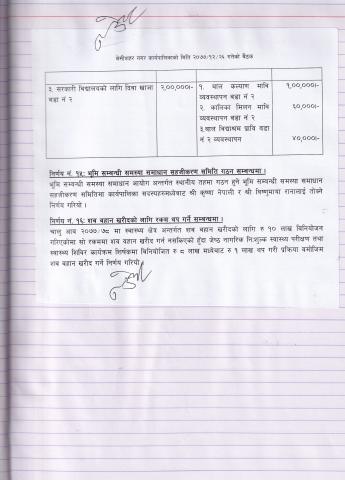 बेसीशहर नगर कार्यपालिकाको मिति २०७७/१२/२६ गतेको बैठक
३. सरकारी विद्यालयको लागि दिवा खाजा वडा नं २
२,००,०००/-
१. बाल कल्याण मावि व्यवस्थापन वडा नं २
१,००,०००/-
२. कालिका मिलन मावि व्यवस्थापन वडा नं २
६०,०००/-
३.बाल विद्याश्रम प्रावि वडा नं २ व्यवस्थापन
४०,०००/-
निर्णय नं. १५: भूमि सम्बन्धी समस्या समाधान सहजीकरण समिति गठन सम्बन्धमा ।
भूमि सम्बन्धी समस्या समाधान आयोग अन्तर्गत स्थानीय तहमा गठन हुने भूमि सम्बन्धी समस्या समाधान
सहजीकरण समितिमा कार्यपालिका सदस्यहरुमध्येबाट श्री कृष्णा नेपाली र श्री विष्णुमाया रानालाई तोक्ने
निर्णय गरियो ।
निर्णय नं. १६: शव बहान खरीदको लागि रकम थप गर्ने सम्बन्धमा ।
चालु आव २०७७/७८ मा स्वास्थ्य क्षेत्र अन्तर्गत शव बहान खरीदको लागि रु १० लाख विनियोजन
गरिएकोमा सो रकममा शव बहान खरीद गर्न नसकिएको हुँदा जेष्ठ नागरिक निःशुल्क स्वास्थ्य परीक्षण तथा
स्वास्थ्य शिविर कार्यक्रम शिर्षकमा विनियोजित रु ८ लाख मध्येबाट रु १ लाख थप गरी प्रकिया बमोजिम
शव बहान खरीद गर्ने निर्णय गरियो ।